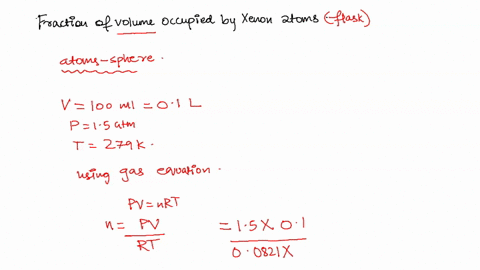 Fraction of volume occupied by Xenon atoms (-flask)
atoms-sphere.
V = 100 ml = 0.1 L
P = 1.5 atm
T = 279 k.
using gas equation.
PV = nRT
n = PV/RT = 1.5 X 0.1/0.0821 X